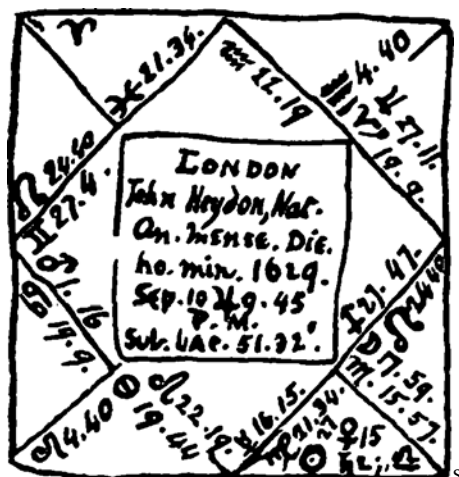 ♈
♓ 21.34.
♒ 22.19
♒ 4.40
♑ 27.11.
19.9.
☊ 24.40
♊ 27.4.
♂ 1.16
♋ 19.9.
LONDON
John Heydon, Nat.
An. Mense. Die.
ho. min. 1629.
Sep. 10 ♃ 9. 45
P. M.
Sub. Lat. 51.32'.
♐ 27. 47.
24.40
☽ 17.59.
♏ 15.57.
♌ 4.40
19.44
♌ 22.19.
16.15.
♍ 21.34.
☉ 27
♀ 15
♄ 2
♎